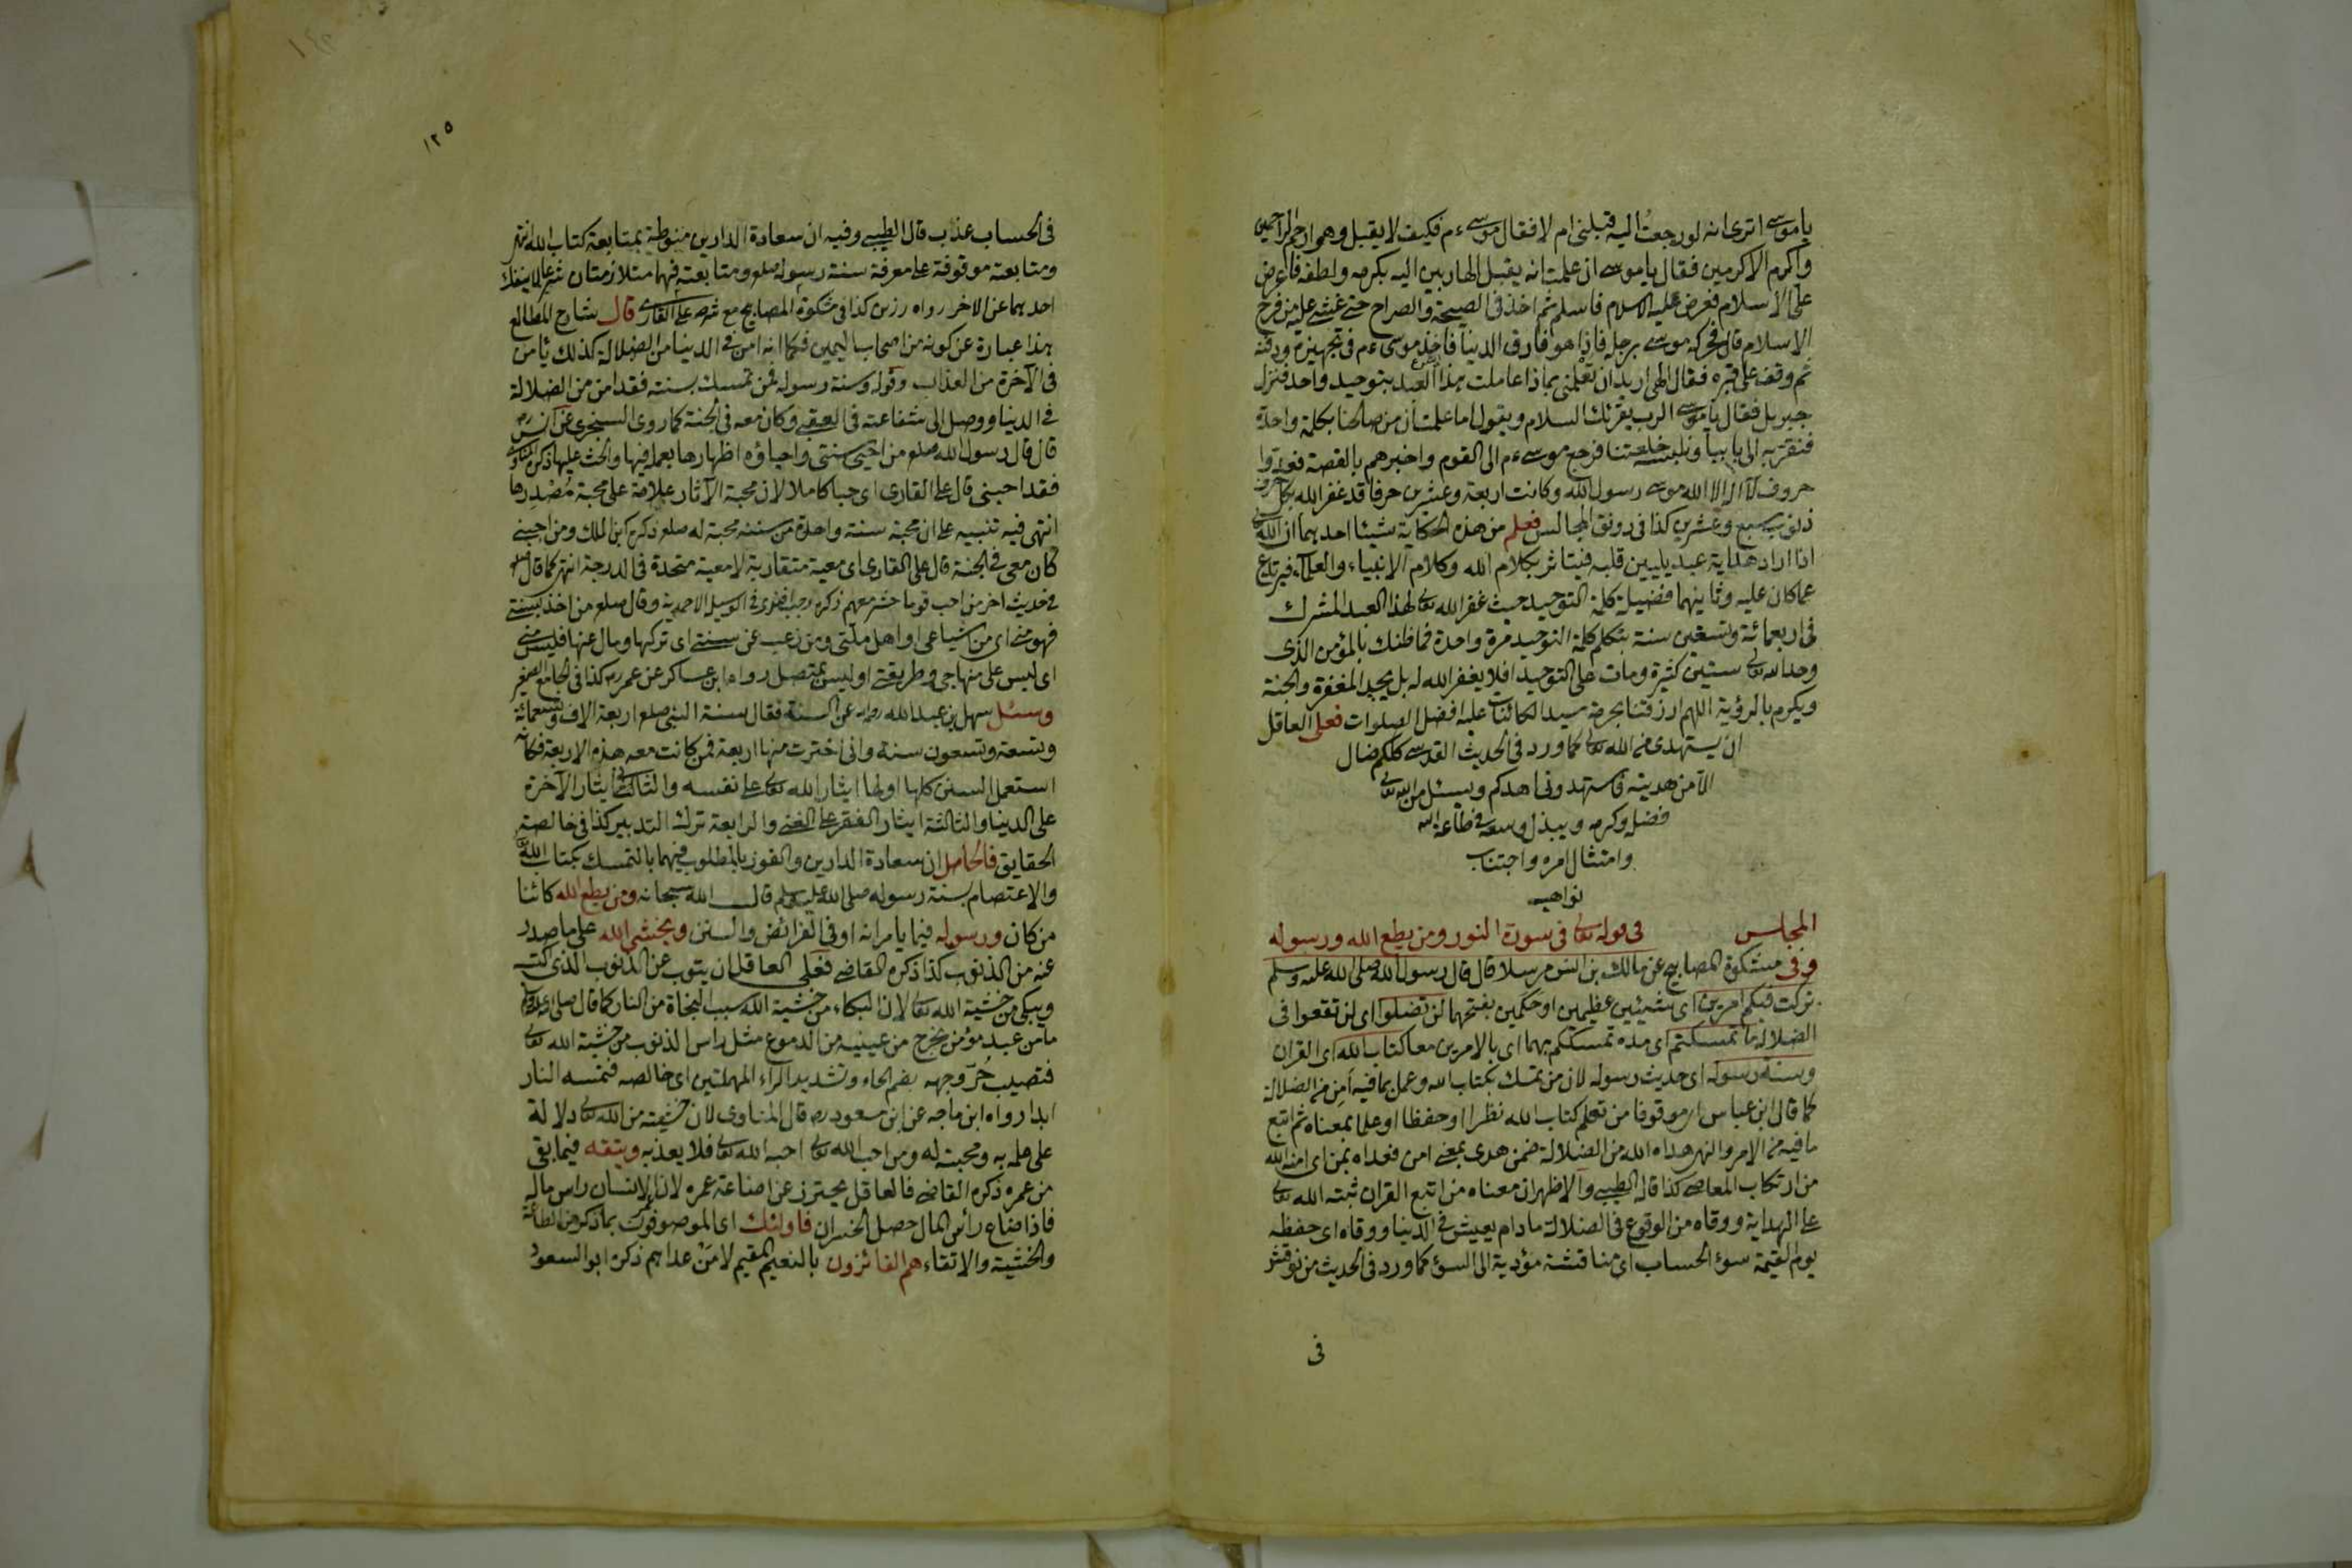 يا موسى اترى انه لو رجعتُ اليه قبلنى ام لا فقال موسى ءم فكيف لا يقبل وهو ارحم الراحمين
واكرم الاكرمين فقال يا موسى ان علمت انه يقبل الهاربين اليه بكرمه ولطفه فاعرض
على الاسلام فعرض عليه السلام فاسلم ثم اخذ فى الصيحة والصراخ حتى غشى عليه من فرح
الاسلام قال فحركه موسى برجله فاذا هو فارق الدنيا فاخذ موسى ءم فى تجهيزه ودفنه
ثم وقف على قبره فقال الهى اريد ان تعلمنى بماذا عاملت هذا العبد بتوحيد واحد فنزل
جبريل فقال يا موسى الرب يقرئك السلام ويقول اما علمت ان من صالحنا بكلمة واحدة
فنقربه الى بابنا ونلبسه خلعتنا فرجع موسى ءم الى القوم واخبرهم بالقصة فعدوا
حروف لا اله الا الله موسى رسول الله وكانت اربعة وعشرين حرفا قد غفر الله بكل حرف
ذنوب سبع وعشرين كذا فى رونق المجالس فعلم من هذه الحكاية شيئا احديهما ان الله تعالى
اذا اراد هداية عبد يليين قلبه فيتاثر بكلام الله وكلام الانبياء والعلماء فيرتدع
عما كان عليه وثانيهما فضيلة كلمة التوحيد حيث غفر الله تعالى لهذا العبد المشرك
فى اربعمائة وتسعين سنة بتكلم كلمة التوحيد مرة واحدة فما ظنك بالمؤمن الذى
وحد الله تعالى ستين كثيرة ومات على التوحيد افلا يغفر الله له بل يجد المغفرة والجنة
ويكرم بالرؤية اللهم ارزقنا بحرمة سيد الكائنات عليه افضل الصلوات فعلى العاقل
ان يستهدى من الله تعالى كما ورد فى الحديث القدسى كلكم ضال
الا من هديته فاستهدونى اهدكم ويسئل من الله تعالى
فضله وكرمه ويبذل وسعه فى طاعة الله
وامتثال امره واجتناب
نواهيه
المجلس فى قوله تعالى فى سورة النور ومن يطع الله ورسوله
وفى مشكوة المصابيح عن مالك بن انس مرسلا قال قال رسول الله صلى الله عليه وسلم
تركت فيكم امرين اى شيئين عظيمين او حكمين بفتحهما لن تضلوا اى لن تقعوا فى
الضلالة ما تمسكتم اى مدة تمسككم بهما اى بالامرين معا كتاب الله اى القران
وسنة رسوله اى حديث رسوله لان من تمسك بكتاب الله وعمل بما فيه اَمِن من الضلالة
كما قال ابن عباس موقوفا من تعلم كتاب الله نظرا او حفظا او علما بمعناه ثم اتبع
ما فيه من الامر والنهى هداه الله من الضلالة ضمن هدى بمعنى امن فعداه بمن اى امنه الله
من ارتكاب المعاصى كذا قاله الطيبى والاظهر ان معناه من اتبع القران ثبته الله تعالى
على الهداية ووقاه من الوقوع فى الضلالة ما دام يعيش فى الدنيا ووقاه اى حفظه
يوم القيمة سوء الحساب اى مناقشة مؤدية الى السوء كما ورد فى الحديث من نوقش
فى
١٢٥
فى الحساب عذب قال الطيبى وفيه ان سعادة الدارين منوطة بمتابعة كتاب الله انتهى
ومتابعته موقوفة على معرفة سنة رسوله صلعم ومتابعته فهما متلازمتان شرعا لا ينفك
احدهما عن الاخر رواه رزين كذا فى مشكوة المصابيح مع شرحه على القارى قال شارح المطالع
هذا عبارة عن كونه من اصحاب اليمين فكما انه امن فى الدنيا من الضلالة كذلك يامن
فى الآخرة من العذاب وقوله وسنة رسوله فمن تمسك بسنته فقد امن من الضلالة
فى الدنيا ووصل الى شفاعته فى العقبى وكان معه فى الجنة كما روى السنجرى عن انس رض
قال قال رسول الله صلعم من احيى سنتى واحياؤه اظهارها بعمله فيها والحث عليها ذكره المناوى
فقد احبنى قال على القارى اى حبا كاملا لان محبة الآثار علامة على محبة مُصْدِرها
انتهى فيه تنبيه على ان محبة سنة واحدة من سننه محبة له صلعم ذكره ابن الملك ومن احبنى
كان معى فى الجنة قال على القارى اى معية متقاربة لا معية متحدة فى الدرجة انتهى كما قال
فى حديث اخر من احب قوما حشر معهم ذكره رجب افندى فى الوسيلة الاحمدية وقال صلعم من اخذ بسنتى
فهو منى اى من اشياعى او اهل ملتى ومن رغب عن سنتى اى تركها ومال عنها فليس منى
اى ليس على منهاجى وطريقتى او ليس بمتصل رواه ابن عساكر عن عمر رض كذا فى الجامع الصغير
وسئل سهل بن عبد الله رح عن السنة فقال سنة النبى صلعم اربعة الاف وتسعمائة
وتسعة وتسعون سنة وانى اخترت منها اربعة فمن كانت معه هذه الاربعة فكانه
استعمل السنن كلها اولها ايثار الله تعالى على نفسه والثانى ايثار الآخرة
على الدنيا والثالثة ايثار الفقر على الغنى والرابعة ترك التدبير كذا فى خالصة
الحقايق فالحاصل ان سعادة الدارين والفوز بالمطلوب فيهما بالتمسك بكتاب الله
والاعتصام بسنة رسوله صلى الله عليه وسلم قال الله سبحانه ومن يطع الله كائنا
من كان ورسوله فيما يامرانه او فى الفرائض والسنن ويخشى الله على ما صدر
عنه من الذنوب كذا ذكره القاضى فعلى العاقل ان يتوب عن الذنوب الذى اكتسبه
ويبكى من خشية الله تعالى لان البكاء من خشية الله سبب النجاة من النار كما قال صلى الله عليه وسلم
ما من عبد مؤمن يخرج من عينيه من الدموع مثل راس الذنوب من خشية الله تعالى
فتصيب حُرّ وجهه بضم الحاء وتشديد الراء المهملتين اى خالصه فتمسه النار
ابدا رواه ابن ماجه عن ابن مسعود رض قال المناوى لان خشيته من الله تعالى دلالة
على علمه به ومحبته له ومن احب الله تعالى احبه الله تعالى فلا يعذبه ويتقه فيما بقى
من عمره ذكره القاضى فالعاقل يحترز عن اضاعة عمره لان عمر الانسان راس ماله
فاذا ضاع رأس المال حصل الخسران فاولئك اى الموصوفون بما ذكر من الطاعة
والخشية والاتقاء هم الفائزون بالنعيم المقيم لا مَنْ عداهم ذكره ابو السعود